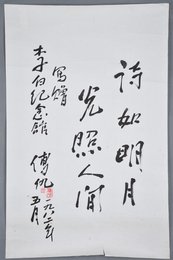 诗如明月
光照人间
写赠
李白纪念馆
傅仇
一九八二年
五月